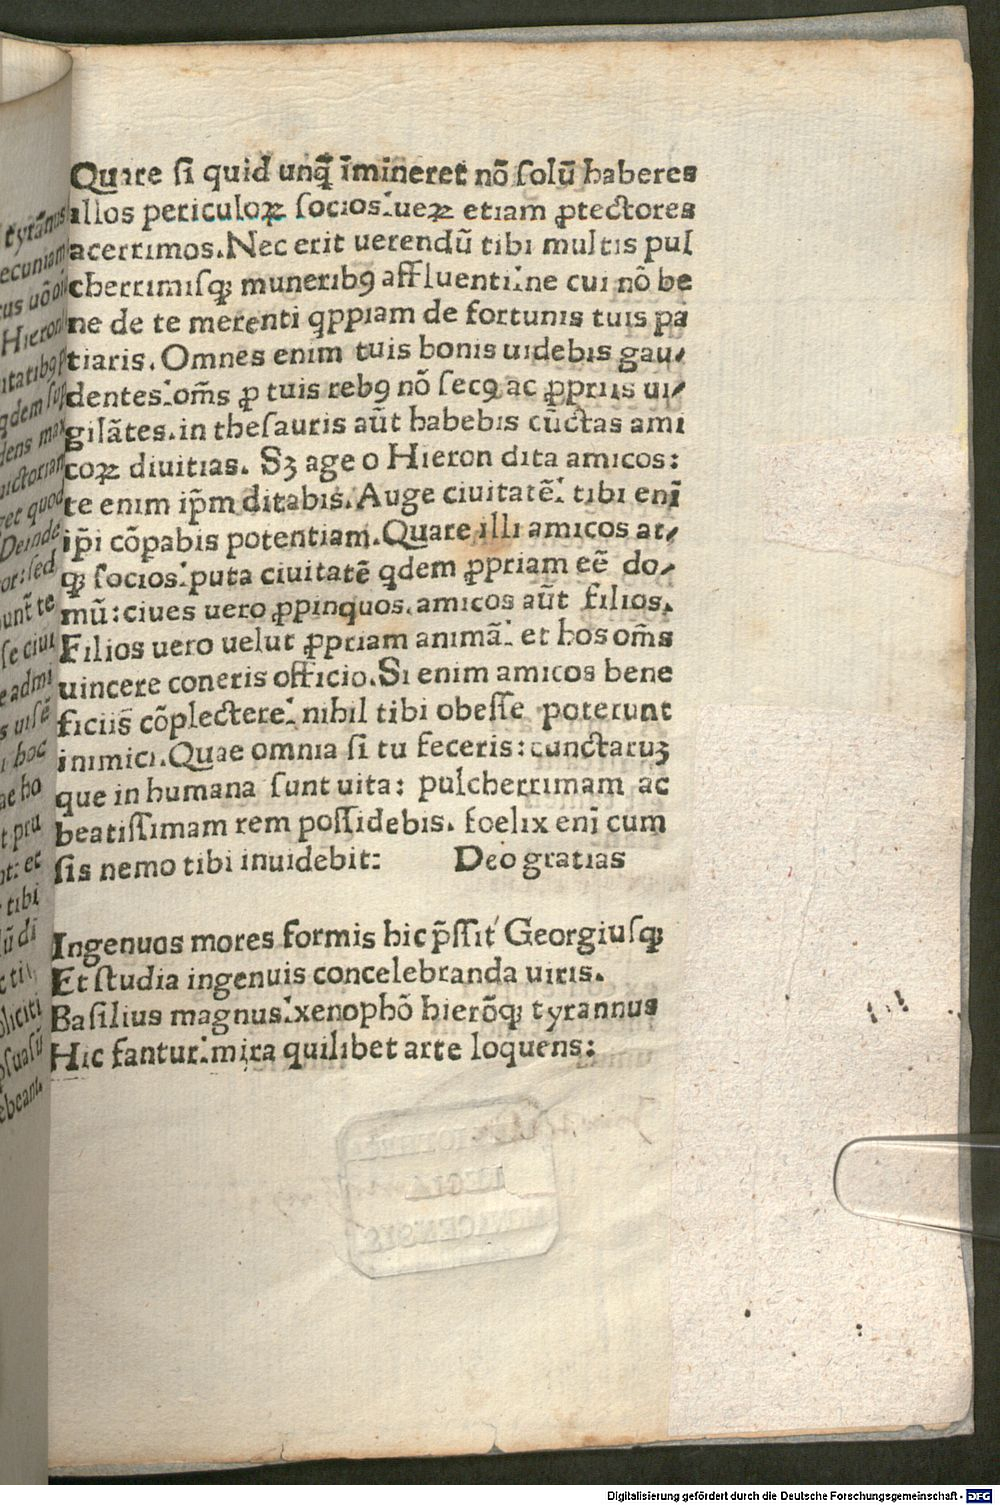 Quare ſi quid unq̃ ĩmineret nõ ſolũ haberes
illos periculoꝝ ſocios⁏ueꝝ etiam ꝓtectores
acerrimos.Nec erit uerendũ tibi multis pul
cherrimiſqꝫ muneribꝰ affluenti⁏ne cui nõ be
ne de te merenti qppiam de fortunis tuis pa
tiaris. Omnes enim tuis bonis uidebis gau⸗
dentes⁏om̃s ꝓ tuis rebꝰ nõ ſecꝰ ac ꝓpriis ui⸗
gilãtes.in theſauris aũt habebis cũctas ami
coꝝ diuitias. Sꝫ age o Hieron dita amicos:
te enim ip̃m ditabis.Auge ciuitatẽ⁏ tibi enĩ
ip̃i cõpabis potentiam.Quare illi amicos at⸗
qꝫ ſocios⁏puta ciuitatẽ qdem ꝓpriam eẽ do⸗
mũ:ciues uero ꝓpinquos.amicos aũt filios.
Filios uero uelut ꝓpriam animã⁏ et hos om̃s
uincere coneris officio.Si enim amicos bene
ficiis cõplectere⁏ nihil tibi obeſſe poterunt
inimici.Quae omnia ſi tu feceris:cunctaruꝫ
que in humana ſunt uita: pulcherrimam ac
beatiſſimam rem poſſidebis. foelix enĩ cum
ſis nemo tibi inuidebit: Deo gratias
Ingenuos mores formis hic p̃ſſit Georgiuſqꝫ
Et ſtudia ingenuis concelebranda uiris.
Baſilius magnus⁏xenophõ hierõqꝫ tyrannus
Hic fantur⁏mira quilibet arte loquens:
Digitalisierung gefördert durch die Deutsche Forschungsgemeinschaft - DFG